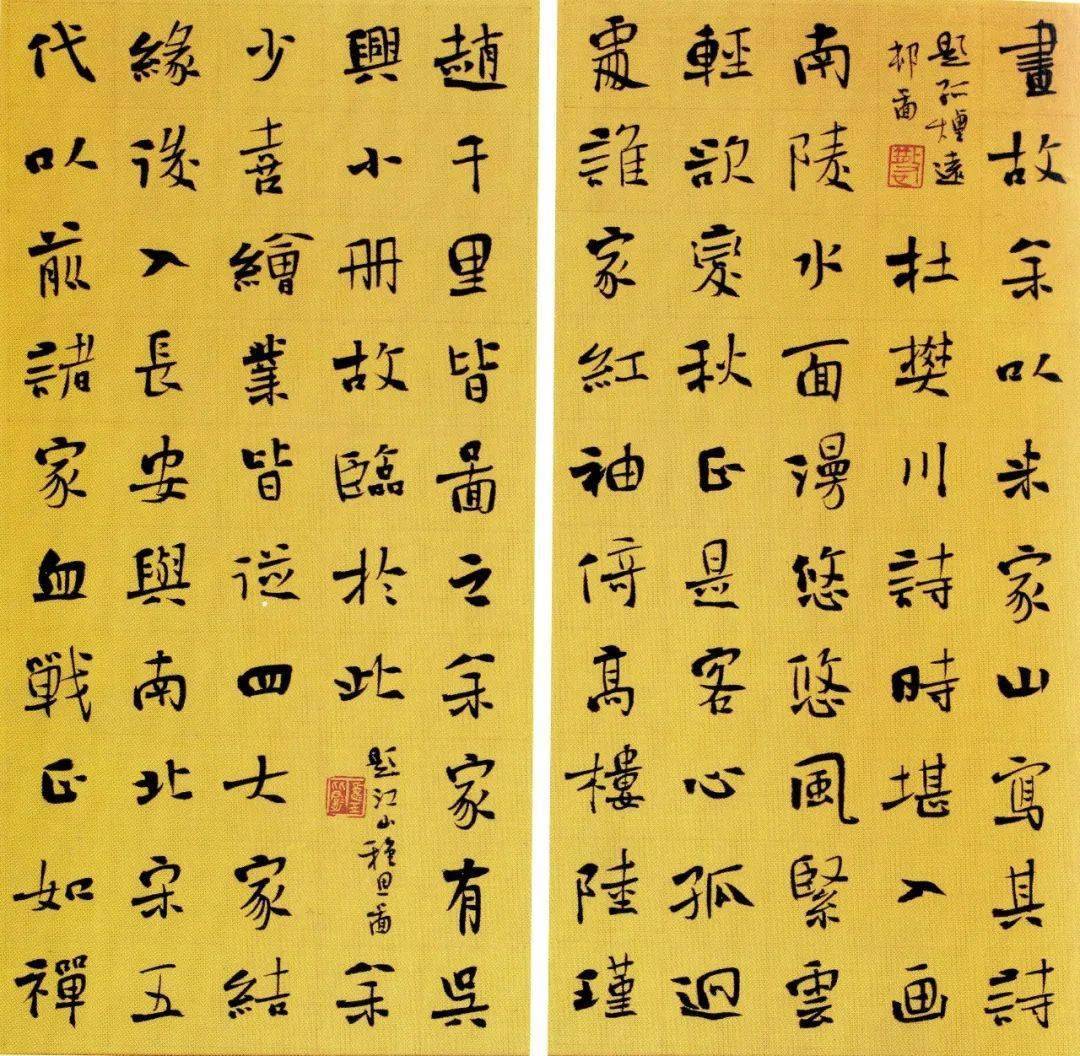 畫故余以米家山寫其詩
題孤煙遠
邨圖
杜樊川詩時堪入画
南陵水面漫悠悠風緊雲
輕欲變秋正是客心孤迥
處誰家紅袖倚高樓陸瑾
趙千里皆圖之余家有吳
興小册故臨於此
題江山穐思圖
余
少喜繪業皆從四大家結
緣後入長安與南北宋五
代以前諸家血戰正如禪